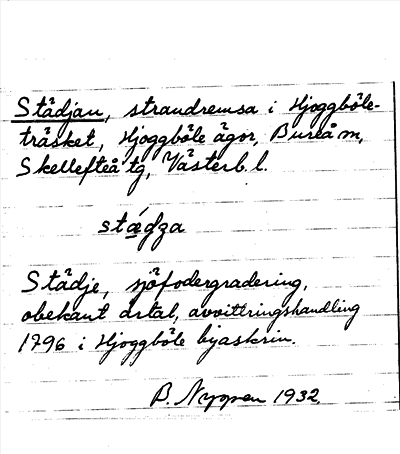 Städjan, strandremsa i Hjoggböle-
träsket, Hjoggböle ägor, Bureå m,
Skellefteå tg, Västerb. l.
stǽdza
Städje, sjöfodergradering,
obekant årtal, avvittringshandling
1796 i Hjoggböle byaskrin.
B. Nygren 1932.